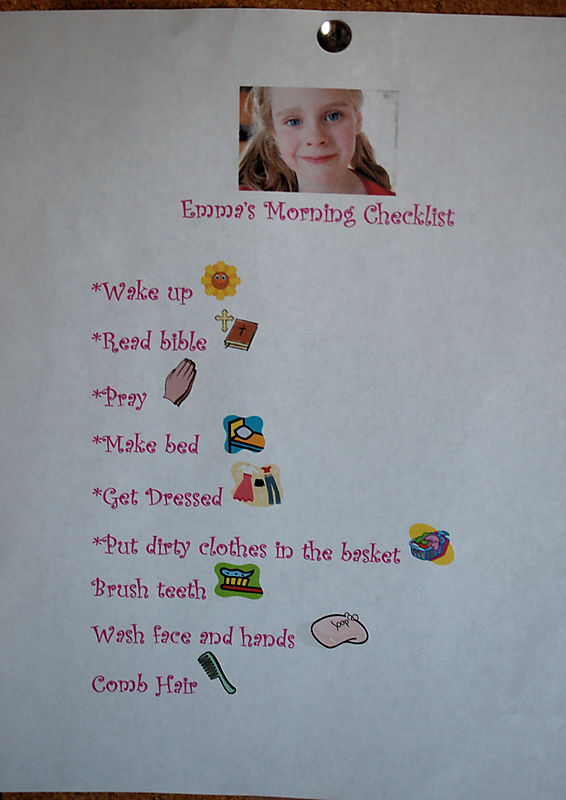 Emma's Morning Checklist
*Wake up
*Read bible
*Pray
*Make bed
*Get Dressed
*Put dirty clothes in the basket
Brush teeth
Wash face and hands
Comb Hair